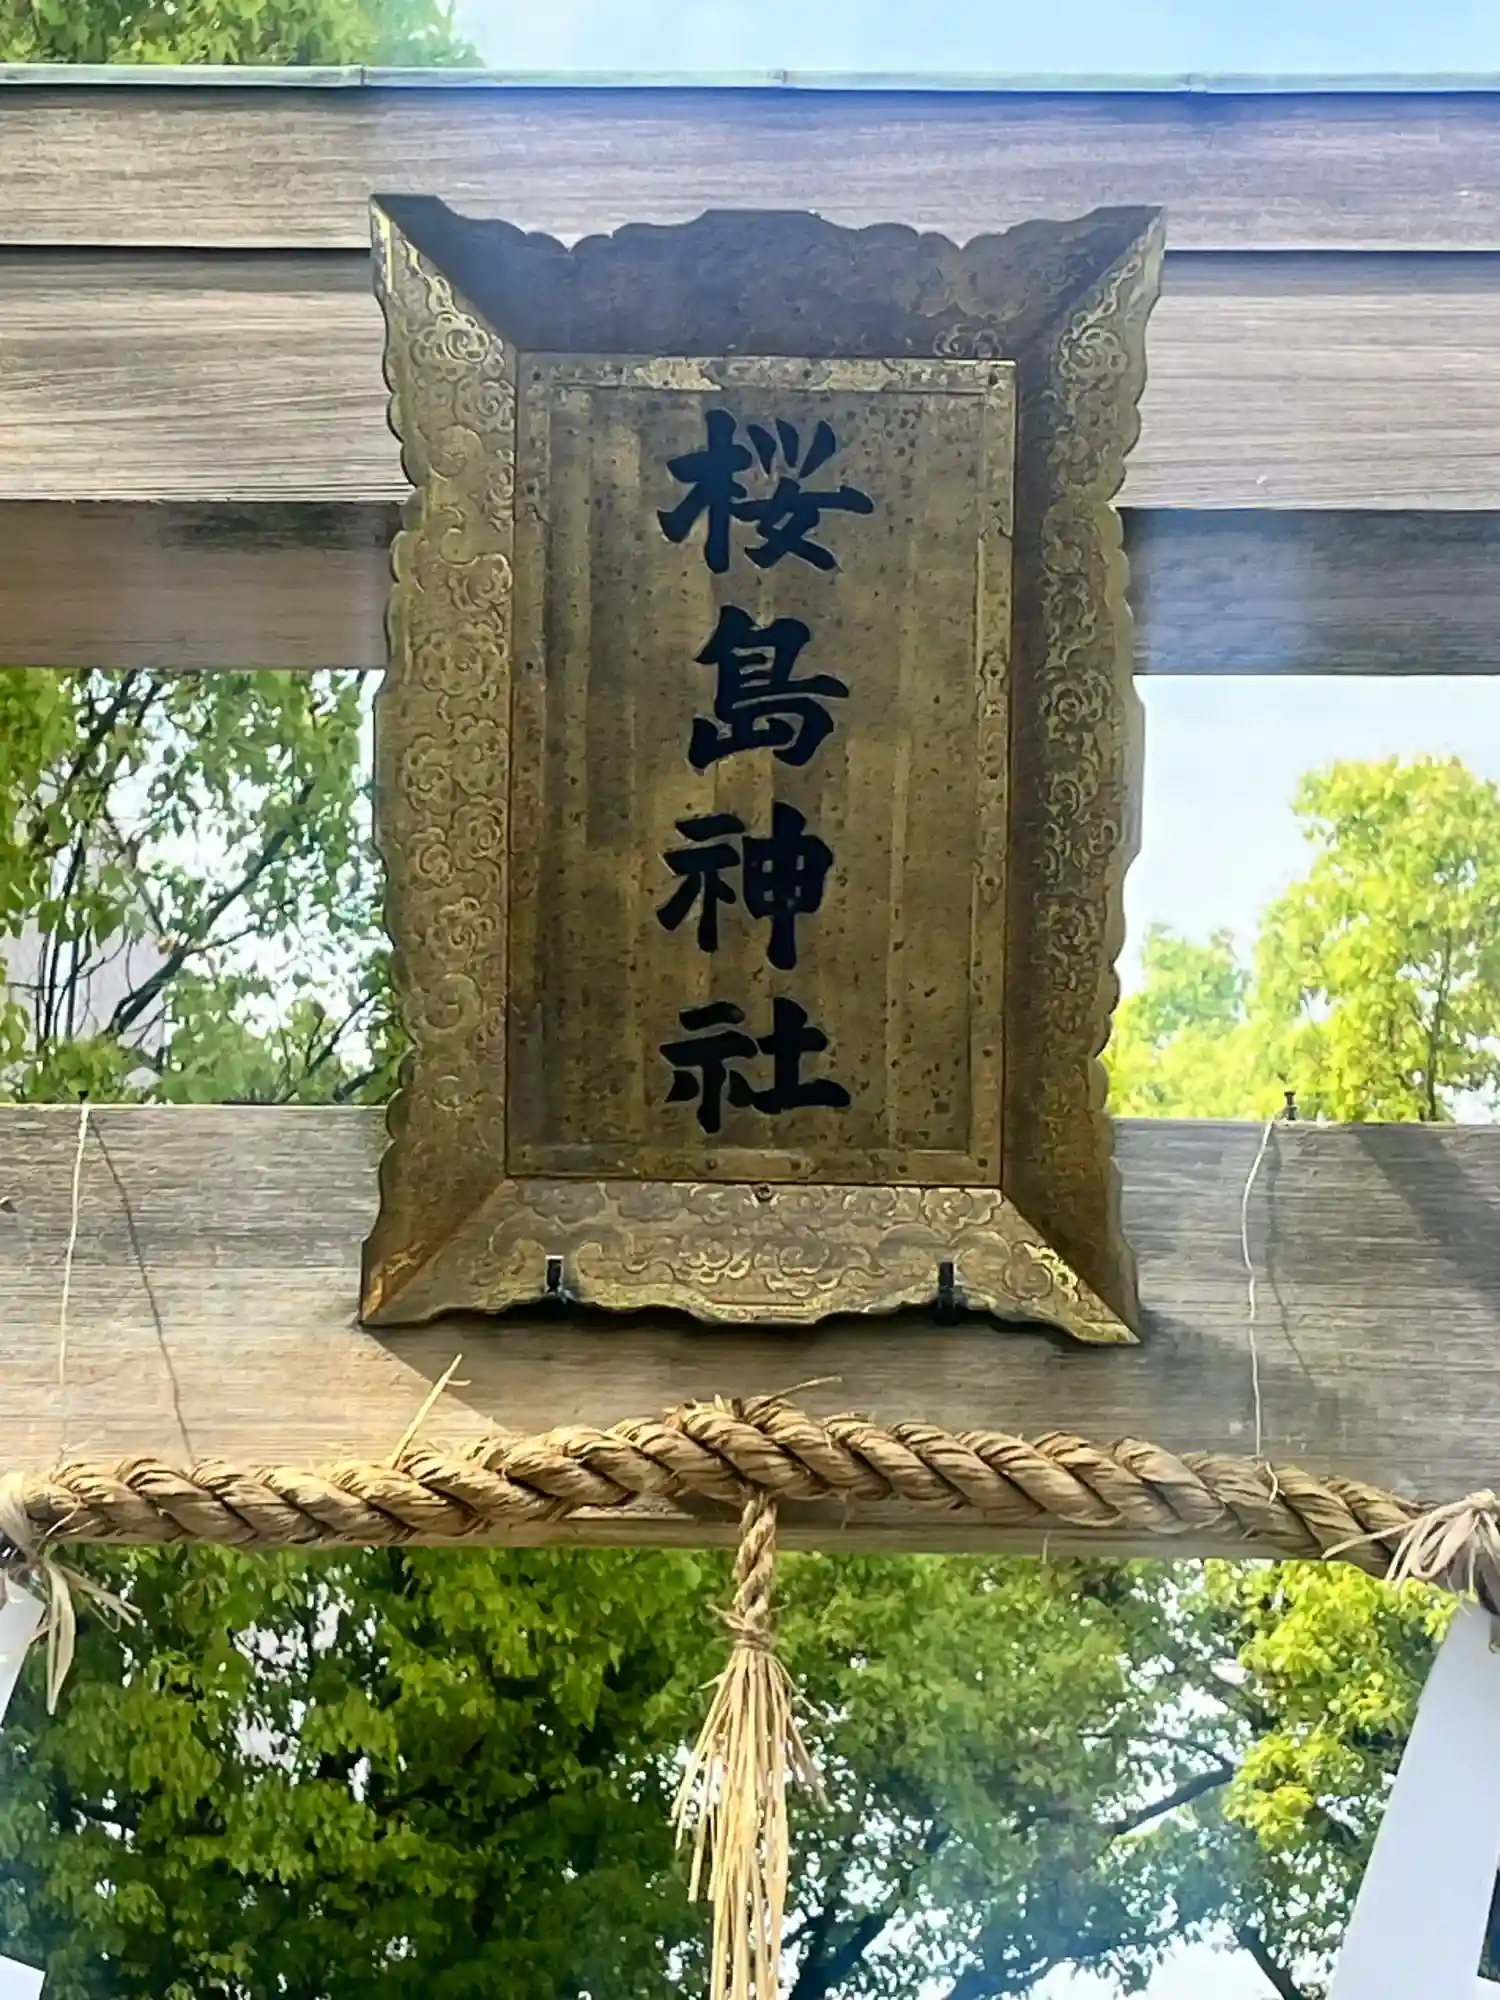 桜島神社